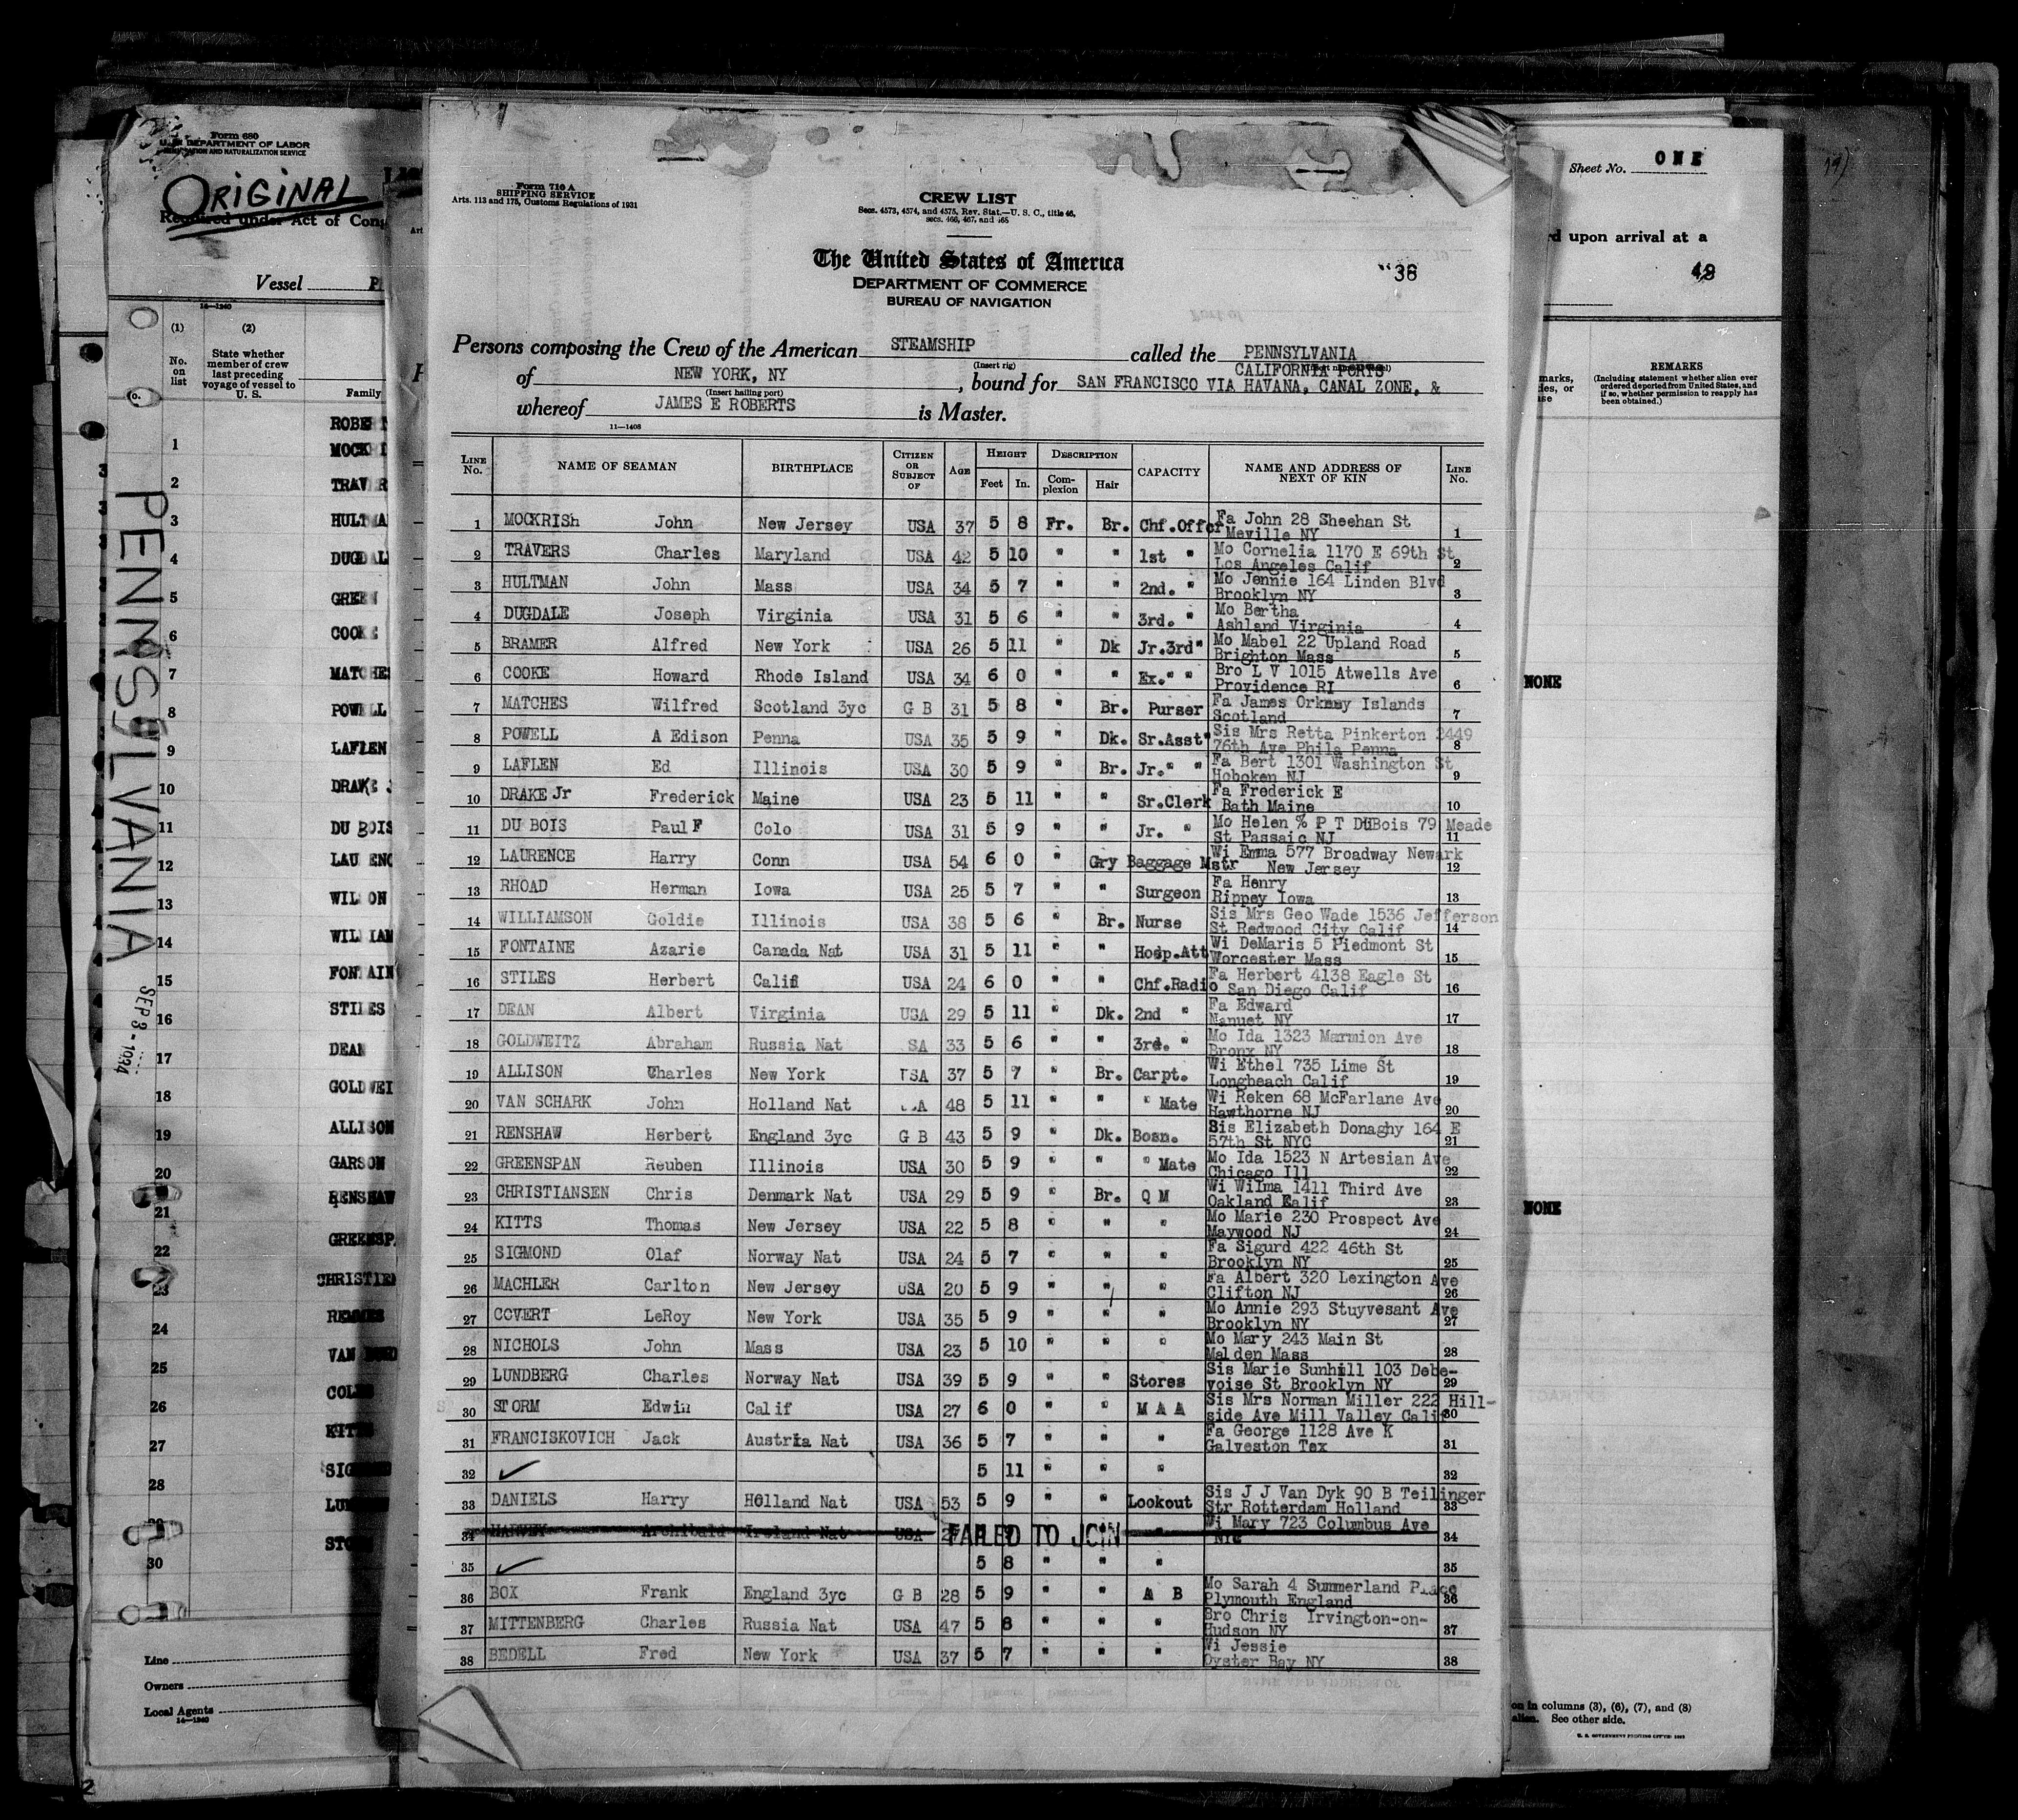 Form 680
U. S. DEPARTMENT OF LABOR
IMMIGRATION AND NATURALIZATION SERVICE
ORIGINAL
Required under Act of Cong
Vessel
14—1240
(1) (2)
No. on list
State whether member of crew last preceding voyage of vessel to U. S.
Family
ROBE
1 MOCK
2 TRAV R
3 HULTMA
4 DUGDAL
5 GREEN
6 COOKE
7 MATCHES
8 POWELL
9 LAFLEN
10 DRAKE J
11 DU BOIS
12 LAU ENC
13 WIL ON
14 WILLIAM
15 FONTAIN
16 STILES
17 DEAN
18 GOLDWEI
19 ALLISON
20 GARSON
21 RENSHAW
22 GREENSP
23 CHRISTIE
24
25 VAN
26
27
28
29
30
PENNSYLVANIA
SEP 3 - 1934
Line
Owners
Local Agents
14—1240
2
Form 710 A
SHIPPING SERVICE
Arts. 113 and 175, Customs Regulations of 1931
CREW LIST
Secs. 4573, 4574, and 4575, Rev. Stat.—U. S. C., title 46,
secs. 466, 467, and 465
The United States of America
DEPARTMENT OF COMMERCE
BUREAU OF NAVIGATION
36
Persons composing the Crew of the American STEAMSHIP called the PENNSYLVANIA
(Insert rig)
CALIFORNIA PORTS
of NEW YORK, NY , bound for SAN FRANCISCO VIA HAVANA, CANAL ZONE, &
(Insert hailing port)
whereof JAMES E ROBERTS is Master.
11—1408
LINE No. NAME OF SEAMAN BIRTHPLACE CITIZEN OR SUBJECT OF AGE HEIGHT Feet In. DESCRIPTION Complexion Hair CAPACITY NAME AND ADDRESS OF NEXT OF KIN LINE No.
1 MOCKRISh John New Jersey USA 37 5 8 Fr. Br. Chf.Offcr Fa John 28 Sheehan St
Meville NY 1
2 TRAVERS Charles Maryland USA 42 5 10 " " 1st " Mo Cornelia 1170 E 69th St
Los Angeles Calif 2
3 HULTMAN John Mass USA 34 5 7 " " 2nd. " Mo Jennie 164 Linden Blvd
Brooklyn NY 3
4 DUGDALE Joseph Virginia USA 31 5 6 " " 3rd. " Mo Bertha
Ashland Virginia 4
5 BRAMER Alfred New York USA 26 5 11 " Dk Jr.3rd" Mo Mabel 22 Upland Road
Brighton Mass 5
6 COOKE Howard Rhode Island USA 34 6 0 " " Ex." " Bro L V 1015 Atwells Ave
Providence RI 6
7 MATCHES Wilfred Scotland 3yc G B 31 5 8 " Br. Purser Fa James Orkney Islands
Scotland 7
8 POWELL A Edison Penna USA 35 5 9 " Dk. Sr.Asst" Sis Mrs Retta Pinkerton 2449
76th Ave Phila Penna 8
9 LAFLEN Ed Illinois USA 30 5 9 " Br. Jr." " Fa Bert 1301 Washington St
Hoboken NJ 9
10 DRAKE Jr Frederick Maine USA 23 5 11 " " Sr.Clerk Fa Frederick E
Bath Maine 10
11 DU BOIS Paul F Colo USA 31 5 9 " " Jr. " Mo Helen % P T DuBois 79 Meade
St Passaic NJ 11
12 LAURENCE Harry Conn USA 54 6 0 " Gry Baggage Mstr Wi Emma 577 Broadway Newark
New Jersey 12
13 RHOAD Herman Iowa USA 25 5 7 " " Surgeon Fa Henry
Rippey Iowa 13
14 WILLIAMSON Goldie Illinois USA 38 5 6 " Br. Nurse Sis Mrs Geo Wade 1536 Jefferson
St Redwood City Calif 14
15 FONTAINE Azarie Canada Nat USA 31 5 11 " " Hosp.Att Wi DeMaris 5 Piedmont St
Worcester Mass 15
16 STILES Herbert Calif USA 24 6 0 " " Chf.Radio Fa Herbert 4138 Eagle St
San Diego Calif 16
17 DEAN Albert Virginia USA 29 5 11 " Dk. 2nd " Fa Edward
Nanuet NY 17
18 GOLDWEITZ Abraham Russia Nat SA 33 5 6 " " 3rd. " Mo Ida 1323 Marmion Ave
Bronx NY 18
19 ALLISON Charles New York USA 37 5 7 " Br. Carpt. Wi Ethel 735 Lime St
Longbeach Calif 19
20 VAN SCHARK John Holland Nat A 48 5 11 " " " Mate Wi Reken 68 McFarlane Ave
Hawthorne NJ 20
21 RENSHAW Herbert England 3yc G B 43 5 9 " Dk. Bosn. Sis Elizabeth Donaghy 164 E
57th St NYC 21
22 GREENSPAN Reuben Illinois USA 30 5 9 " " " Mate Mo Ida 1523 N Artesian Ave
Chicago Ill 22
23 CHRISTIANSEN Chris Denmark Nat USA 29 5 9 " Br. Q M Wi Wilma 1411 Third Ave
Oakland Ealif 23
24 KITTS Thomas New Jersey USA 22 5 8 " " " Mo Marie 230 Prospect Ave
Maywood NJ 24
25 SIGMOND Olaf Norway Nat USA 24 5 7 " " " Fa Sigurd 422 46th St
Brooklyn NY 25
26 MACHLER Carlton New Jersey USA 20 5 9 " " " Fa Albert 320 Lexington Ave
Clifton NJ 26
27 COVERT LeRoy New York USA 35 5 9 " " " Mo Annie 293 Stuyvesant Ave
Brooklyn NY 27
28 NICHOLS John Mass USA 23 5 10 " " " Mo Mary 243 Main St
Malden Mass 28
29 LUNDBERG Charles Norway Nat USA 39 5 9 " " Stores Sis Marie Sunhill 103 Debe-
voise St Brooklyn NY 29
30 STORM Edwin Calif USA 27 6 0 " " M A A Sis Mrs Norman Miller 222 Hill-
side Ave Mill Valley Calif 30
31 FRANCISKOVICH Jack Austria Nat USA 36 5 7 " " " Fa George 1128 Ave K
Galveston Tex 31
32 ✓ 5 11 " " " 32
33 DANIELS Harry Holland Nat USA 53 5 9 " " Lookout Sis J J Van Dyk 90 B Teilinger
Str Rotterdam Holland 33
34 HARVEY Archibald Ireland Nat USA FAILED TO JOIN " Wi Mary 723 Columbus Ave
NYC 34
35 ✓ 5 8 " " " 35
36 BOX Frank England 3yc G B 28 5 9 " " A B Mo Sarah 4 Summerland Place
Plymouth England 36
37 MITTENBERG Charles Russia Nat USA 47 5 8 " " " Bro Chris Irvington-on-
Hudson NY 37
38 BEDELL Fred New York USA 37 5 7 " " " Wi Jessie
Oyster Bay NY 38
Sheet No. ONE
rd upon arrival at a
REMARKS
(Including statement whether alien ever ordered deported from United States, and if so, whether permission to reapply has been obtained.)
marks,
NONE
NONE
on in columns (3), (6), (7), and (8)
alien. See other side.
U. S. GOVERNMENT PRINTING OFFICE